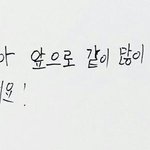 아 앞으로 같이 많이
요!